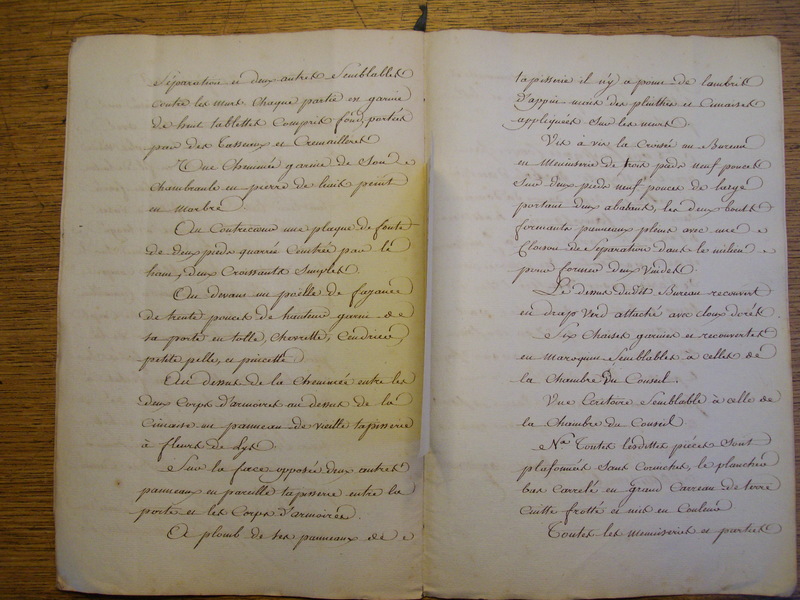 Séparation et deux autres Semblables
contre les murs. Chaque partie est garnie
de huit tablettes compris fond, portées
par des Tasseaux et Cremailleres
Une Cheminée garnie de Son
chambranle en pierre de liais peint
en marbre
Au Contrecœur une plaque de fonte
de deux pieds quarrée Ceintrée par le
haut, deux Croissants Simples.
Au devant un poëlle de fayance
de trente pouces de hauteur garni de
sa porte en tolle, chevrette, Cendrier,
petite pelle, et pincette
Au dessus de la Cheminée entre les
deux Corps d'armoires au dessus de la
Cimaise un panneau de vieille tapisserie
à fleurs de Lys.
Sur la face opposée deux autres
panneaux en pareille tapisserie entre la
porte et les Corps d'armoires.
A plomb de ses panneaux de
tapisserie il n'y a point de lambris
d'appui mais des plinthes et Cimaises
appliquées Sur les murs.
Vis à vis la Croisée un Bureau
en Menuiserie de trois pieds neuf pouces
Sur deux pieds neuf pouces de large
portant deux abatans, les deux bouts
formants panneaux pleins avec une
Cloison de Séparation dans le milieu
pour former deux Vuides.
Le dessus dudit Bureau recouvert
en drap Verd attaché avec cloux dorés.
Six Chaises garnies et recouvertes
en maroquin Semblables à celles de
la Chambre du Conseil.
Une Ecritoire Semblable à celle de
la Chambre du Conseil.
Na Toutes lesdittes pièces sont
plafonnées Sans Corniches, le plancher
bas Carrelé en grand Carreau de terre
cuitte frotté et mis en Couleur
Toutes les Menuiseries et parties